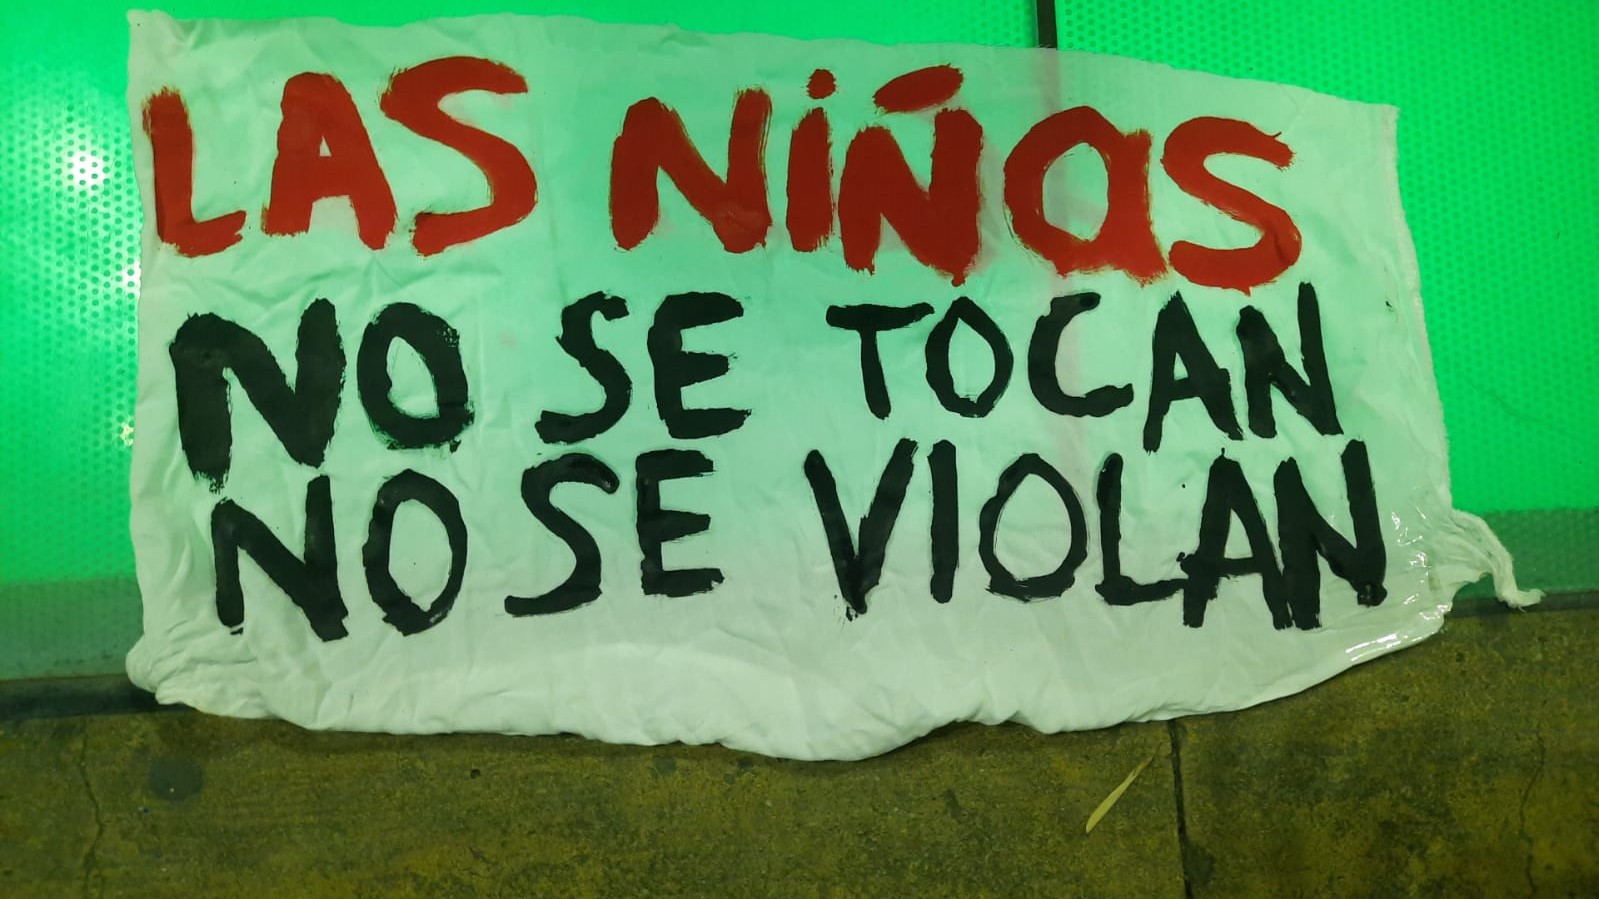 LAS NiÑaS
NO SE TOCAN
NO SE VIOLAN